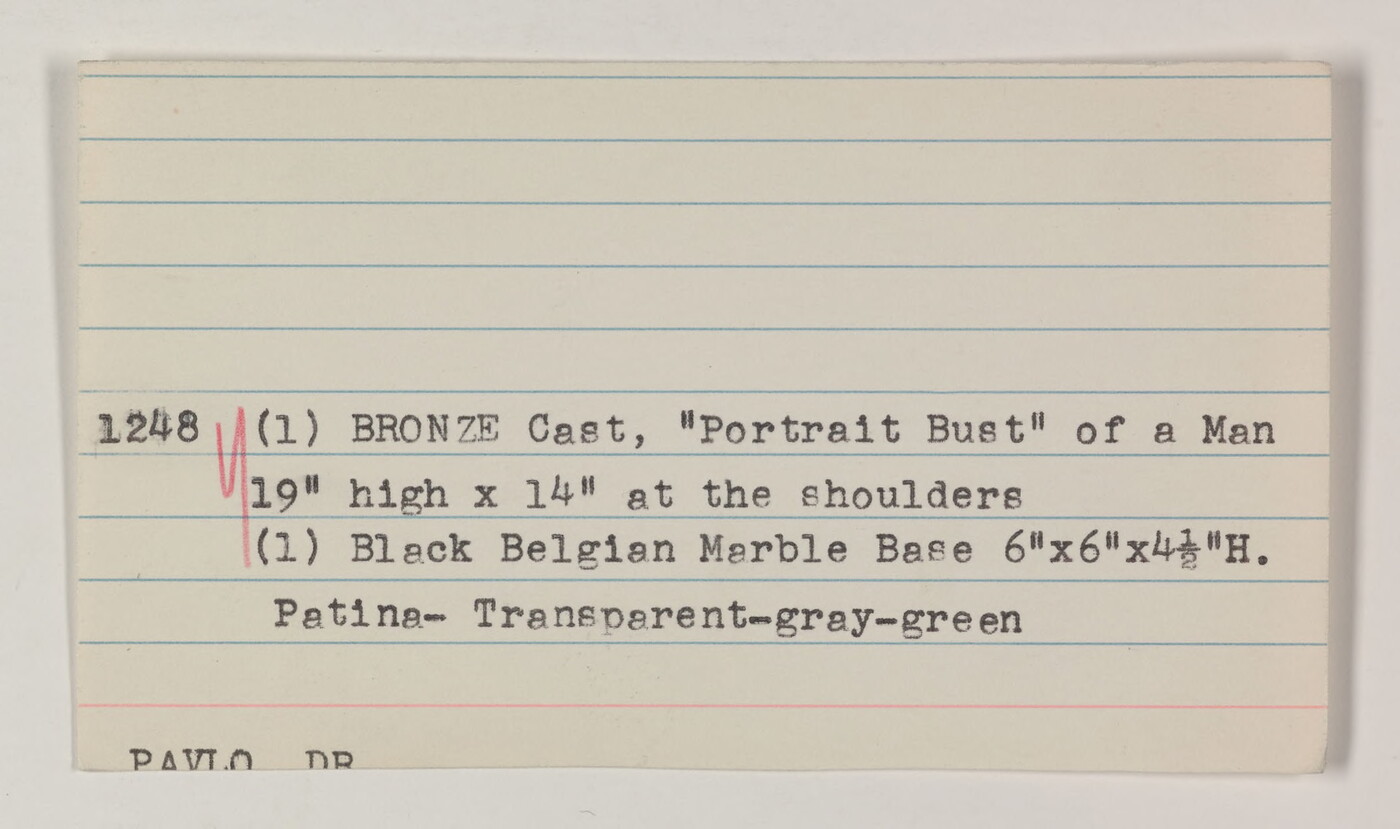 1248 (1) BRONZE Cast, "Portrait Bust" of a Man
19" high x 14" at the shoulders
(1) Black Belgian Marble Base 6"x6"x4½"H.
Patina- Transparent-gray-green
PAVLO DR